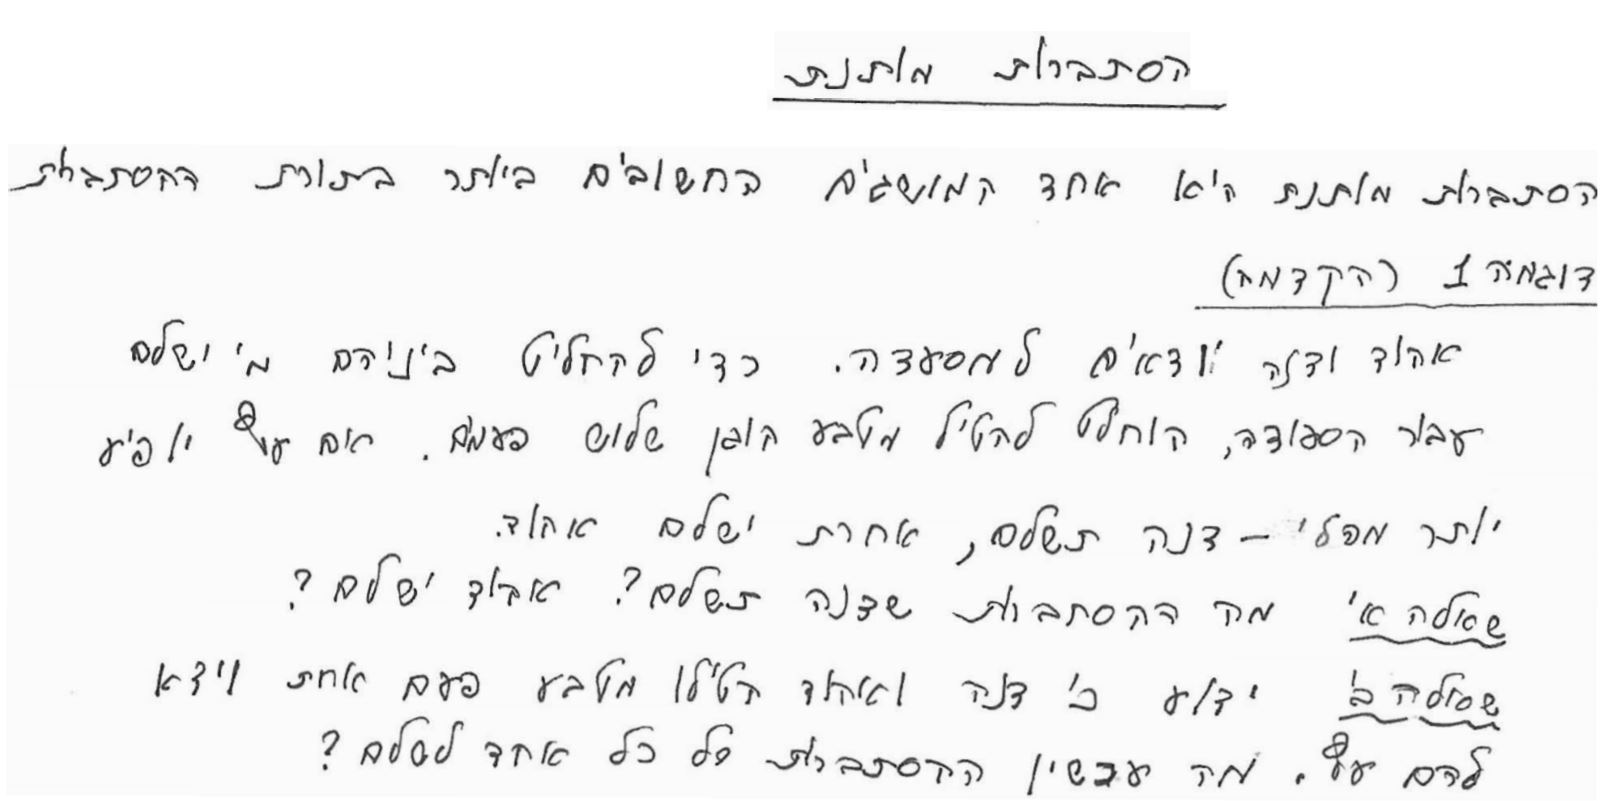 הסתברות מותנת
הסתברות מותנת היא אחד המושגים החשובים ביותר בתורת ההסתברות
דוגמה 1 (הקדמה)
אהוד ודנה יוצאים למסעדה. כדי להחליט ביניהם מי ישלם
עבור הסעודה, הוחלט להטיל מטבע הוגן שלוש פעמים. אם עץ יופיע
יותר מפלי - דנה תשלם, אחרת ישלם אהוד.
שאלה א' מה ההסתברות שדנה תשלם? אהוד ישלם?
שאלה ב' ידוע כי דנה ואהוד הטילו מטבע פעם אחת ויצא
להם עץ. מה עכשיו ההסתברות של כל אחד לשלם?